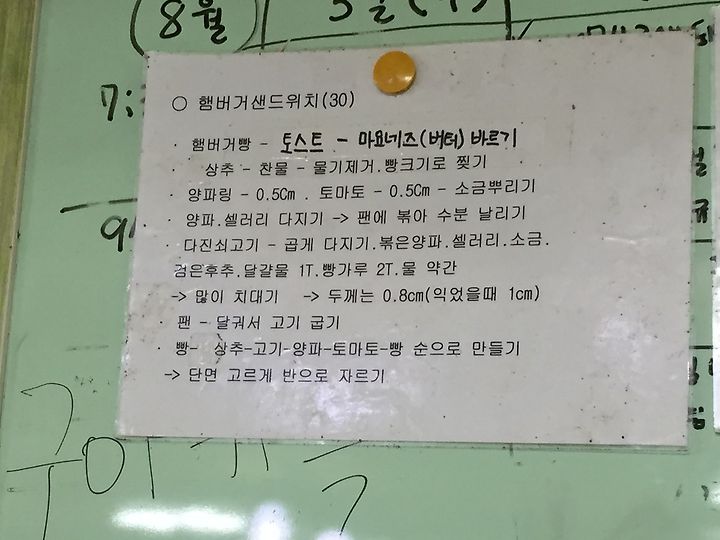 8월
○ 햄버거샌드위치(30)
· 햄버거빵 - 토스트 - 마요네즈(버터) 바르기
· 상추 - 찬물 - 물기제거.빵크기로 찢기
· 양파링 - 0.5Cm . 토마토 - 0.5Cm - 소금뿌리기
· 양파.셀러리 다지기 -> 팬에 볶아 수분 날리기
· 다진쇠고기 - 곱게 다지기.볶은양파.셀러리.소금.
검은후추.달걀물 1T.빵가루 2T.물 약간
-> 많이 치대기 -> 두께는 0.8cm(익었을때 1cm)
· 팬 - 달궈서 고기 굽기
· 빵- 상추-고기-양파-토마토-빵 순으로 만들기
-> 단면 고르게 반으로 자르기